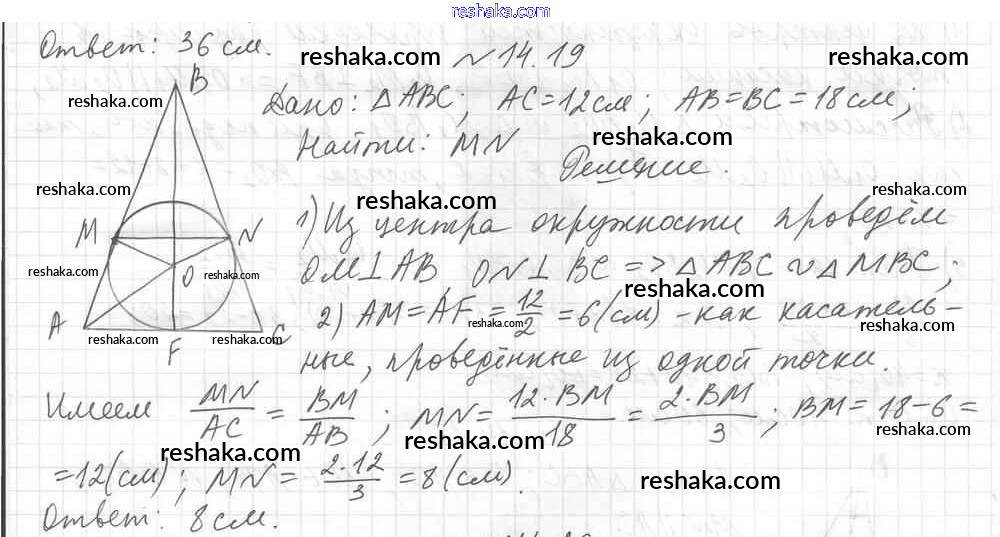 reshaka.com
Ответ: 36 см.
reshaka.com
№14.19
reshaka.com
B
reshaka.com
Дано: △ABC; AC=12см; AB=BC=18см;
reshaka.com
Найти: MN
reshaka.com
Решение.
reshaka.com
reshaka.com
1) Из центра окружности проведём
M N
OM⊥AB, ON⊥BC => △ABC ∾ △MBC;
reshaka.com
O
reshaka.com
reshaka.com
2) AM=AF=12/2=6(см) - как касатель-
reshaka.com
reshaka.com
A C
reshaka.com
F
ные, проведённые из одной точки.
Имеем MN/AC = BM/AB; MN = 12·BM/18 = 2·BM/3; BM = 18-6 =
reshaka.com
reshaka.com
reshaka.com
=12(см); MN = 2·12/3 = 8(см).
reshaka.com
Ответ: 8 см.